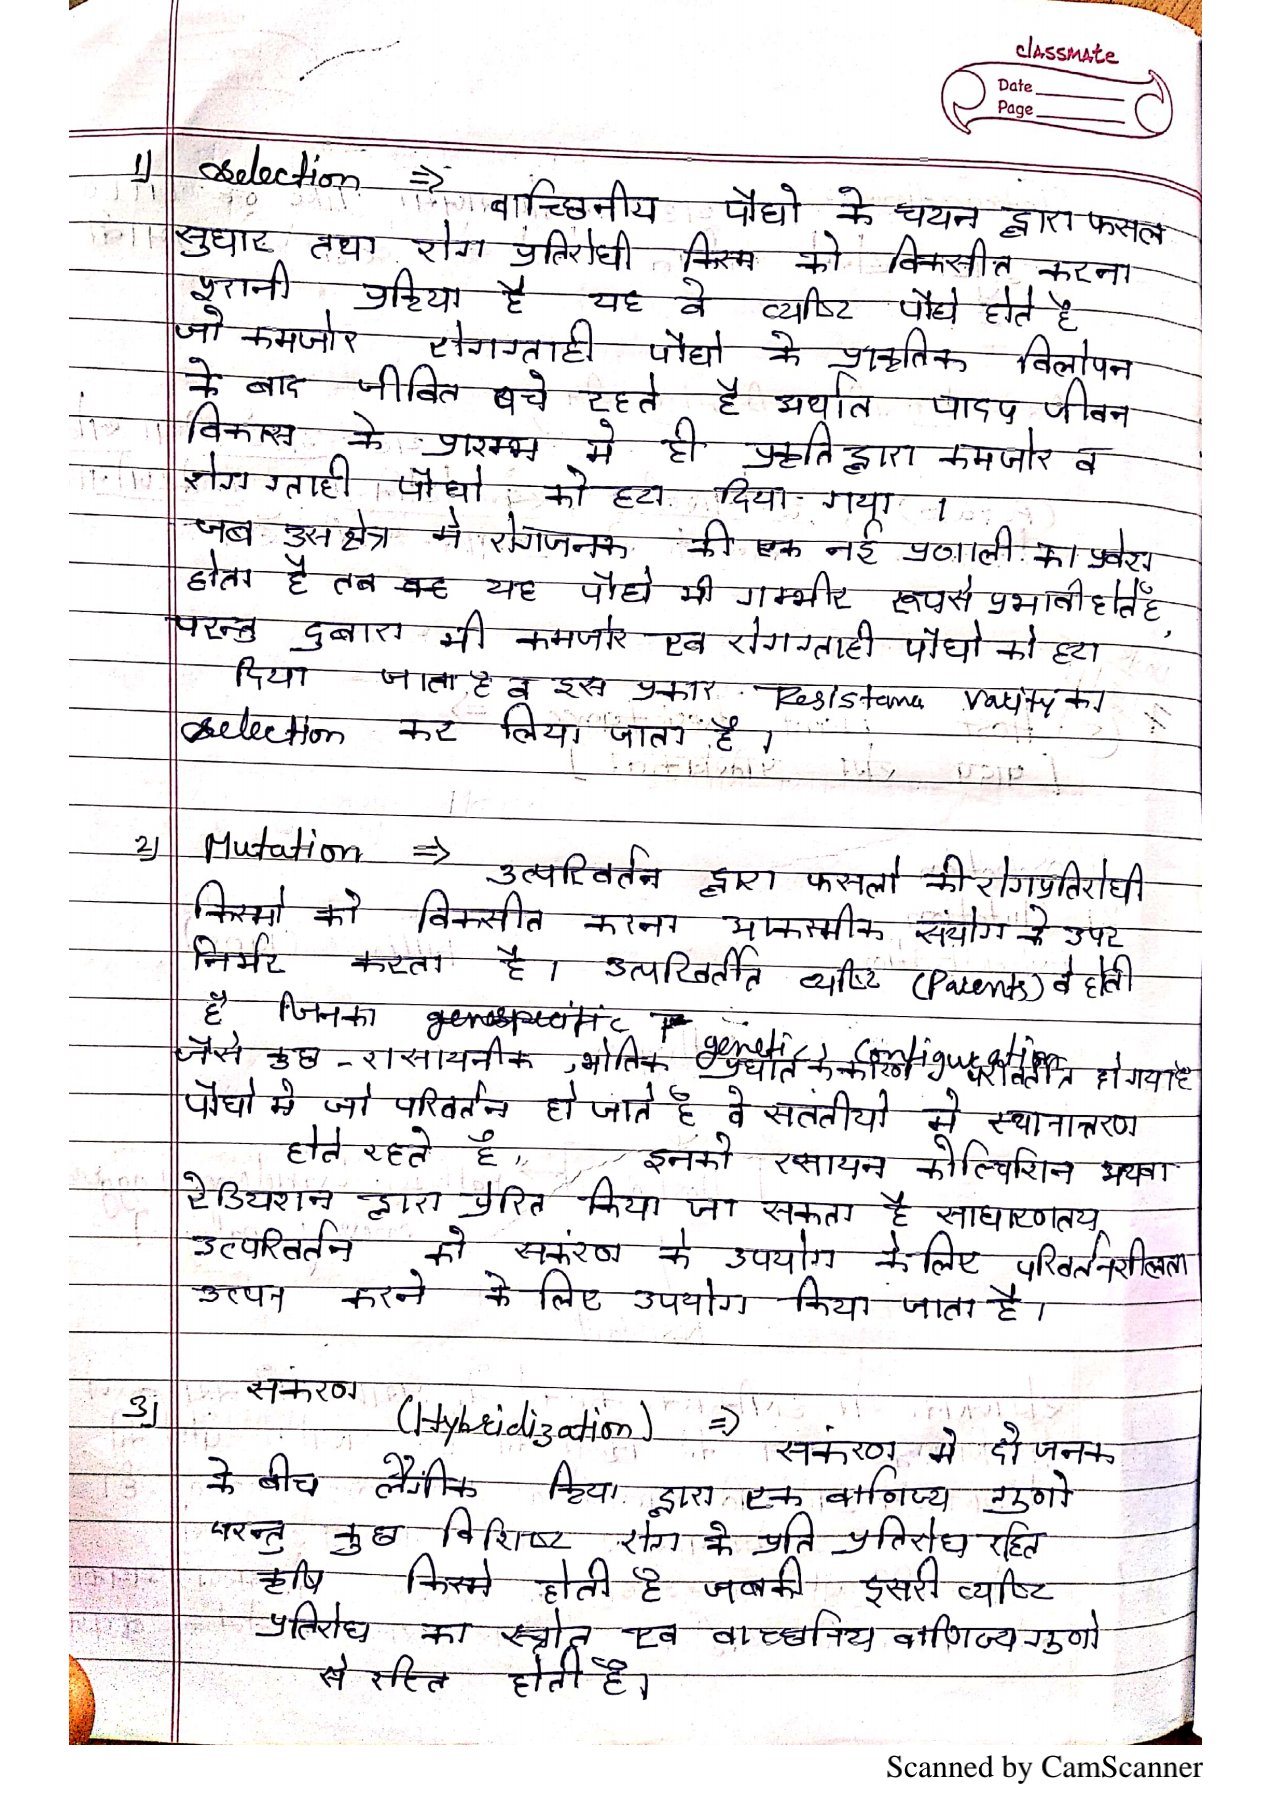 classmate
Date
Page
1) Selection ⇒ वाच्छिनीय पौधो के चयन द्वारा फसल
सुधार तथा रोग प्रतिरोधी किस्म को विकसीत करना
पुरानी प्रक्रिया है यह वे व्यष्टि पौधे होते है
जो कमजोर रोगग्राही पौधो के प्राकृतिक विलोपन
के बाद जीवित बचे रहते है अर्थात पादप जीवन
विकास के प्रारम्भ मे ही प्रकृति द्वारा कमजोर व
रोगग्राही पौधो को हटा दिया गया ।
जब उस क्षेत्र मे रोगजनक की एक नई प्रणाली का प्रवेश
होता है तब यह पौधे भी गम्भीर रूप से प्रभावी होते हैं,
परन्तु दुबारा भी कमजोर एव रोगग्राही पौधो को हटा
दिया जाता है व इस प्रकार Resistana varity का
selection कर लिया जाता है ।
2) Mutation ⇒ उत्परिवर्तन द्वारा फसलो की रोगप्रतिरोधी
किस्मो को विकसीत करना आकस्मीक संयोग के उपर
निर्भर करता है । उत्परिवर्तीत व्यष्टि (Parents) वे होती
है जिनका genetic configuration
जैसे कुछ - रासायनीक, भोतिक प्रघात के कारण परिवर्तीत हो गया है
पौधो मे जो परिवर्तन हो जाते है वे संततीयो मे स्थानान्तरण
होते रहते है, इनको रसायन कोल्चिशिन अथवा
रेडियशन द्वारा प्रेरित किया जा सकता है साधारणतय
उत्परिवर्तन को सकंरण के उपयोग के लिए परिवर्तनशीलता
उत्पन करने के लिए उपयोग किया जाता है ।
3) सकंरण
(Hybridization) ⇒ सकंरण मे दो जनक
के बीच लैंगीक क्रिया द्वारा एक वाणिज्य गुणो
परन्तु कुछ विशिष्ट रोग के प्रति प्रतिरोध रहित
कृषि किस्मे होती है जबकी दुसरी व्यष्टि
प्रतिरोध का स्त्रोत एव वाच्छनिय वाणिज्य गुणो
से रहित होती है ।
Scanned by CamScanner